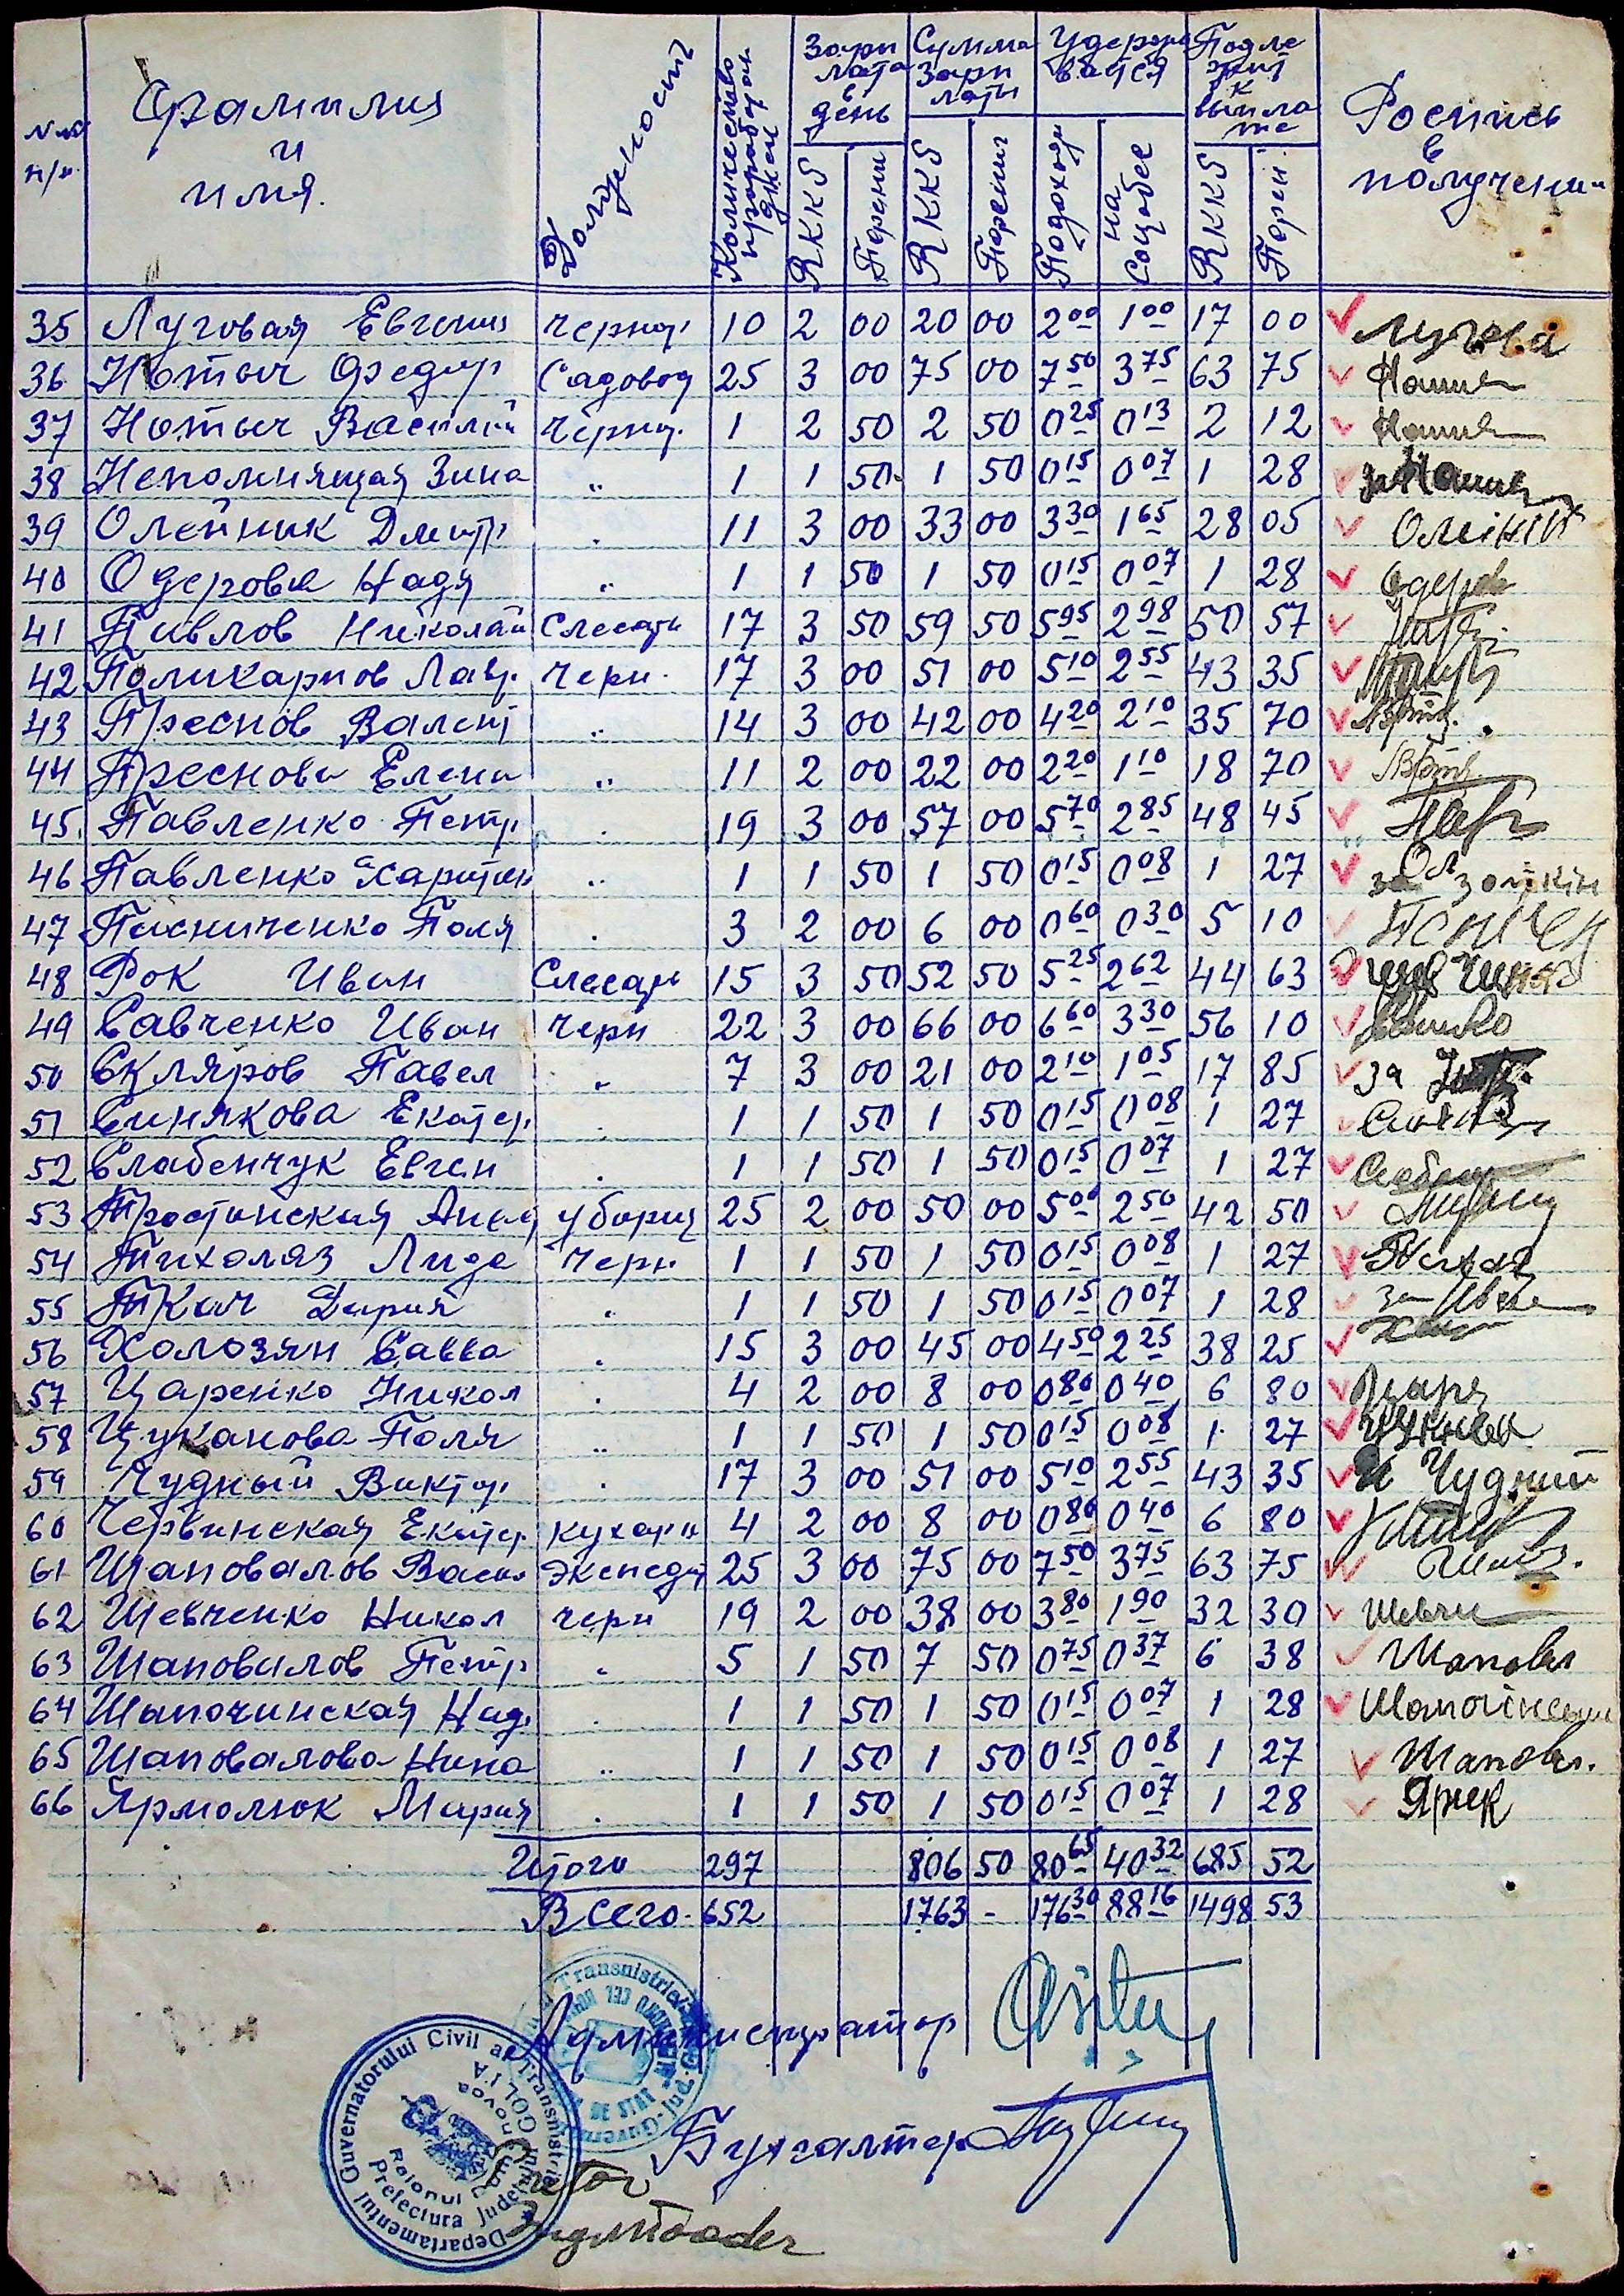 №№ п/п. Фамилия и имя. Должность Количество проработан дней Зарплата в день Сумма зарплаты Удерживается Подлежит к выплате Роспись в получении
RKKS Пфениг RKKS Пфениг Подоходн на Соцобес RKKS Пфен.
35 Луговая Евгения Чернор. 10 2 00 20 00 2 00 1 00 17 00 Лугова
36 Нотыч Федор Садовод 25 3 00 75 00 7 50 3 75 63 75
37 Нотыч Василий Чернор. 1 2 50 2 50 0 25 0 13 2 12
38 Непомнящая Зина " 1 1 50 1 50 0 15 0 07 1 28
39 Олейник Дмитр " 11 3 00 33 00 3 30 1 65 28 05
40 Одерова Надя " 1 1 50 1 50 0 15 0 07 1 28
41 Павлов Николай Слесарь 17 3 50 59 50 5 95 2 98 50 57
42 Поликарпов Лавр. Черн. 17 3 00 51 00 5 10 2 55 43 35
43 Преснов Валент " 14 3 00 42 00 4 20 2 10 35 70
44 Преснова Елена " 11 2 00 22 00 2 20 1 10 18 70
45. Павленко Петр " 19 3 00 57 00 5 70 2 85 48 45
46 Павленко Харитон " 1 1 50 1 50 0 15 0 08 1 27
47 Пасниченко Поля " 3 2 00 6 00 0 60 0 30 5 10
48 Рок Иван Слесарь 15 3 50 52 50 5 25 2 62 44 63
49 Савченко Иван Черн 22 3 00 66 00 6 60 3 30 56 10
50 Скляров Павел " 7 3 00 21 00 2 10 1 05 17 85 за
51 Синякова Екатер " 1 1 50 1 50 0 15 0 08 1 27
52 Слабенчук Евген " 1 1 50 1 50 0 15 0 07 1 27
53 Тростинская убориц 25 2 00 50 00 5 00 2 50 42 50
54 Тихоляз Лида Черн 1 1 50 1 50 0 15 0 08 1 27
55 Ткач Дария " 1 1 50 1 50 0 15 0 07 1 28 за
56 Холозян Савва " 15 3 00 45 00 4 50 2 25 38 25
57 Царенко Никол " 4 2 00 8 00 0 80 0 40 6 80
58 Цуканова Поля " 1 1 50 1 50 0 15 0 08 1 27
59 Чудный Виктор " 17 3 00 51 00 5 10 2 55 43 35 Чудний
60 Червинская Екатер кухарк 4 2 00 8 00 0 80 0 40 6 80
61 Шаповалов Васил экспедит 25 3 00 75 00 7 50 3 75 63 75
62 Шевченко Никол черн 19 2 00 38 00 3 80 1 90 32 30 Шевчен
63 Шаповалов Петр " 5 1 50 7 50 0 75 0 37 6 38 Шаповал
64 Шапочинская Над. " 1 1 50 1 50 0 15 0 07 1 28
65 Шаповалова Нина " 1 1 50 1 50 0 15 0 08 1 27 Шаповал.
66 Ярмолюк Мария " 1 1 50 1 50 0 15 0 07 1 28
Итого 297 806 50 80 65 40 32 685 52
Всего. 652 1763 - 176 30 88 16 1498 53
Администратор
Бухгалтер
Guvernatorului Civil al Transnistriei
Departamentul
Prefectura Judetului
Raionul
GOLTA
Transnistriei
DE STAT
Pretor